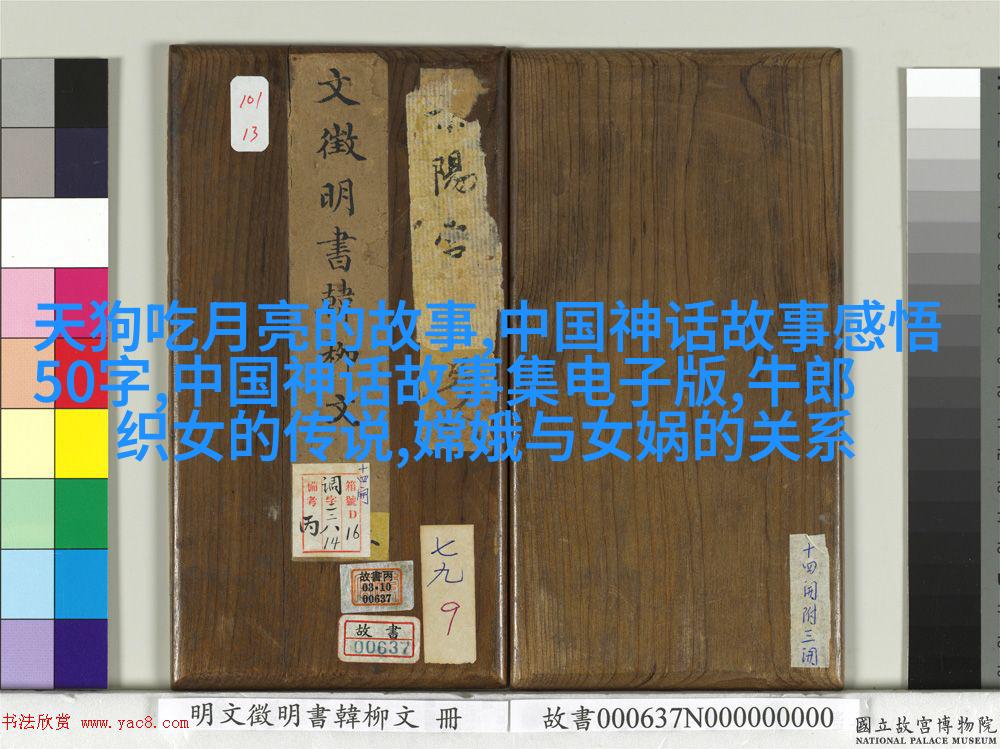 天狗吃月亮的故事,中国神话故事感悟
50字,中国神话故事集电子版,牛郎
织女的传说,嫦娥与女娲的关系
101
13
文徵明書韓柳文
陽宮
十四開
箱號D16
調字三八14
備考丙
故書丙
03·10
00637
故書
00637
七九
9
十四開附三開
明文徵明書韓柳文 冊
故書000637N000000000
書法欣赏 www.yac8.com
國立故宮博物院
NATIONAL PALACE MUSEUM